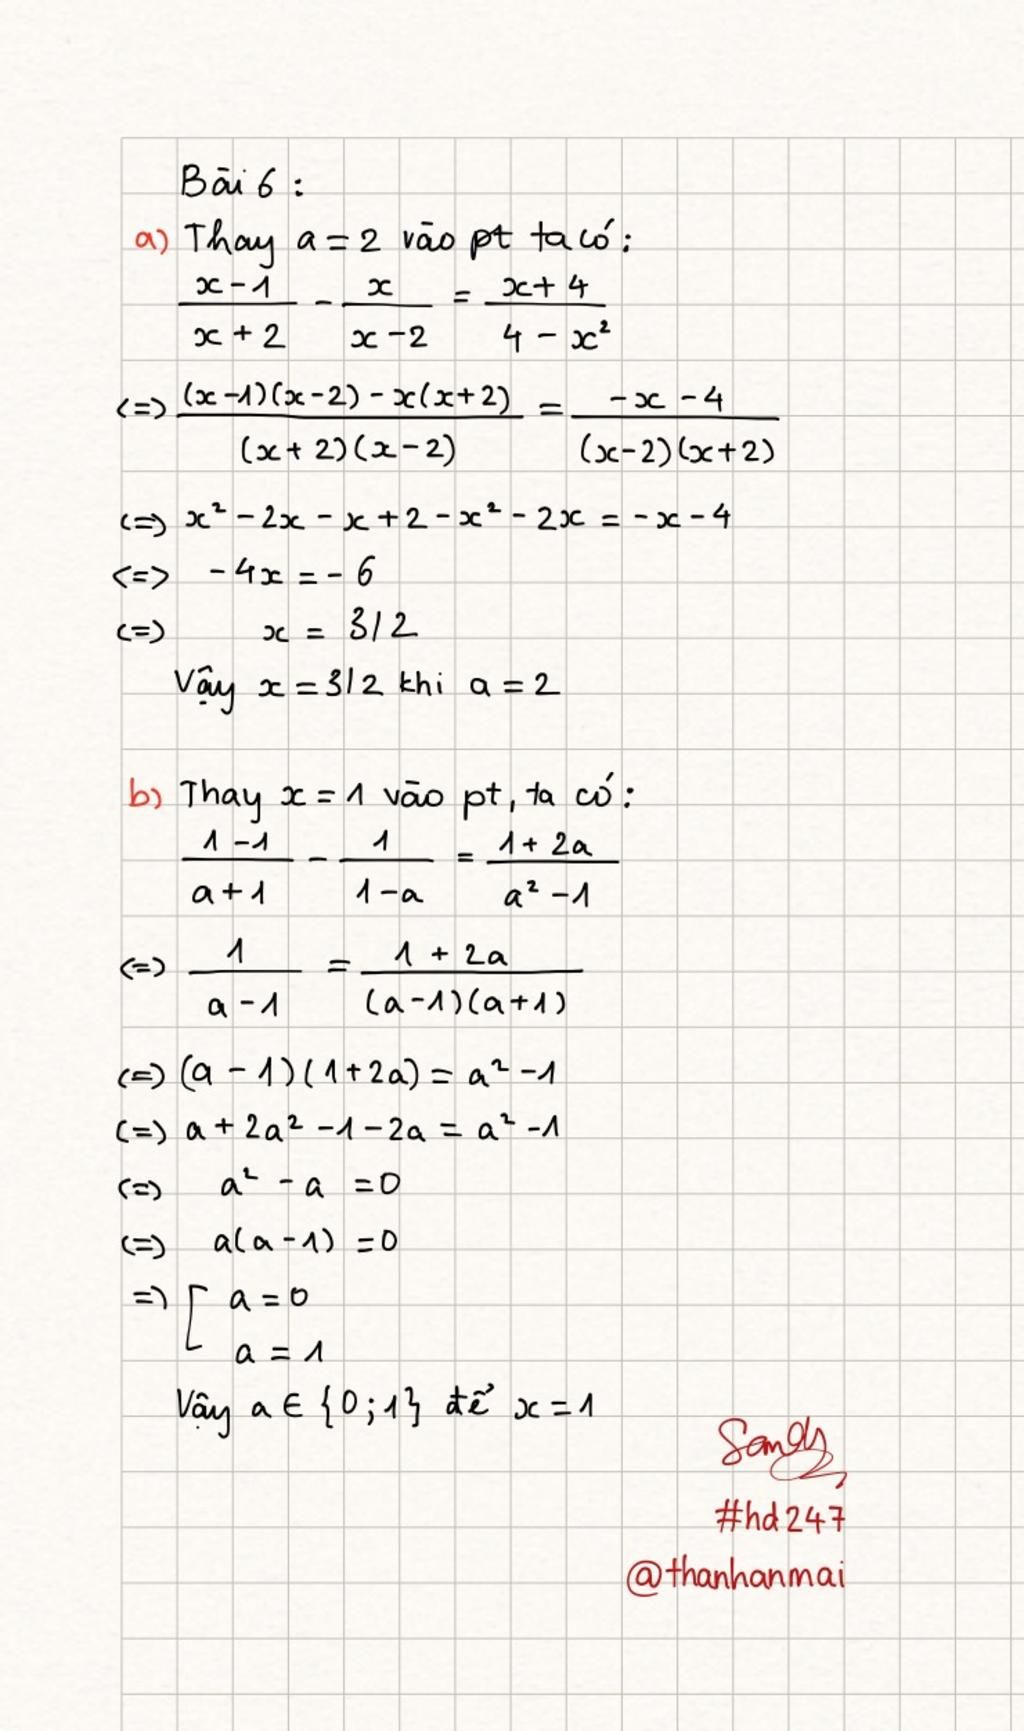 Bài 6 :
a) Thay a = 2 vào pt ta có :
x - 1 / x + 2 - x / x - 2 = x + 4 / 4 - x²
<=> (x - 1)(x - 2) - x(x + 2) / (x + 2)(x - 2) = -x - 4 / (x - 2)(x + 2)
<=> x² - 2x - x + 2 - x² - 2x = -x - 4
<=> -4x = -6
<=> x = 3/2
Vậy x = 3/2 khi a = 2
b) Thay x = 1 vào pt, ta có :
1 - 1 / a + 1 - 1 / 1 - a = 1 + 2a / a² - 1
<=> 1 / a - 1 = 1 + 2a / (a - 1)(a + 1)
<=> (a - 1)(1 + 2a) = a² - 1
<=> a + 2a² - 1 - 2a = a² - 1
<=> a² - a = 0
<=> a(a - 1) = 0
=> [ a = 0
a = 1
Vậy a ∈ {0 ; 1} để x = 1
Sandy
#hd247
@thanhanmai